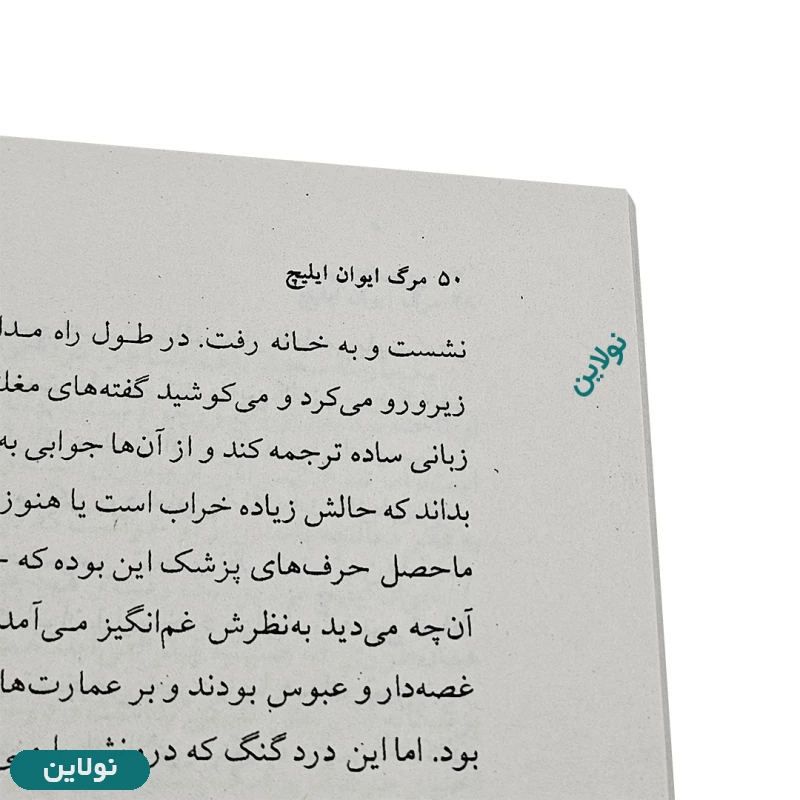 ۵۰ مرگ ایوان ایلیچ
نشست و به خانه رفت. در طول راه
زیرورو می‌کرد و می‌کوشید گفته‌های
زبانی ساده ترجمه کند و از آن‌ها جوابی به
بداند که حالش زیاده خراب است یا هنوز
ماحصل حرف‌های پزشک این بوده که
آن‌چه می‌دید به‌نظرش غم‌انگیز
غصه‌دار و عبوس بودند و بر عمارت‌ها
بود. اما این درد گنگ که
نولاین
نولاین